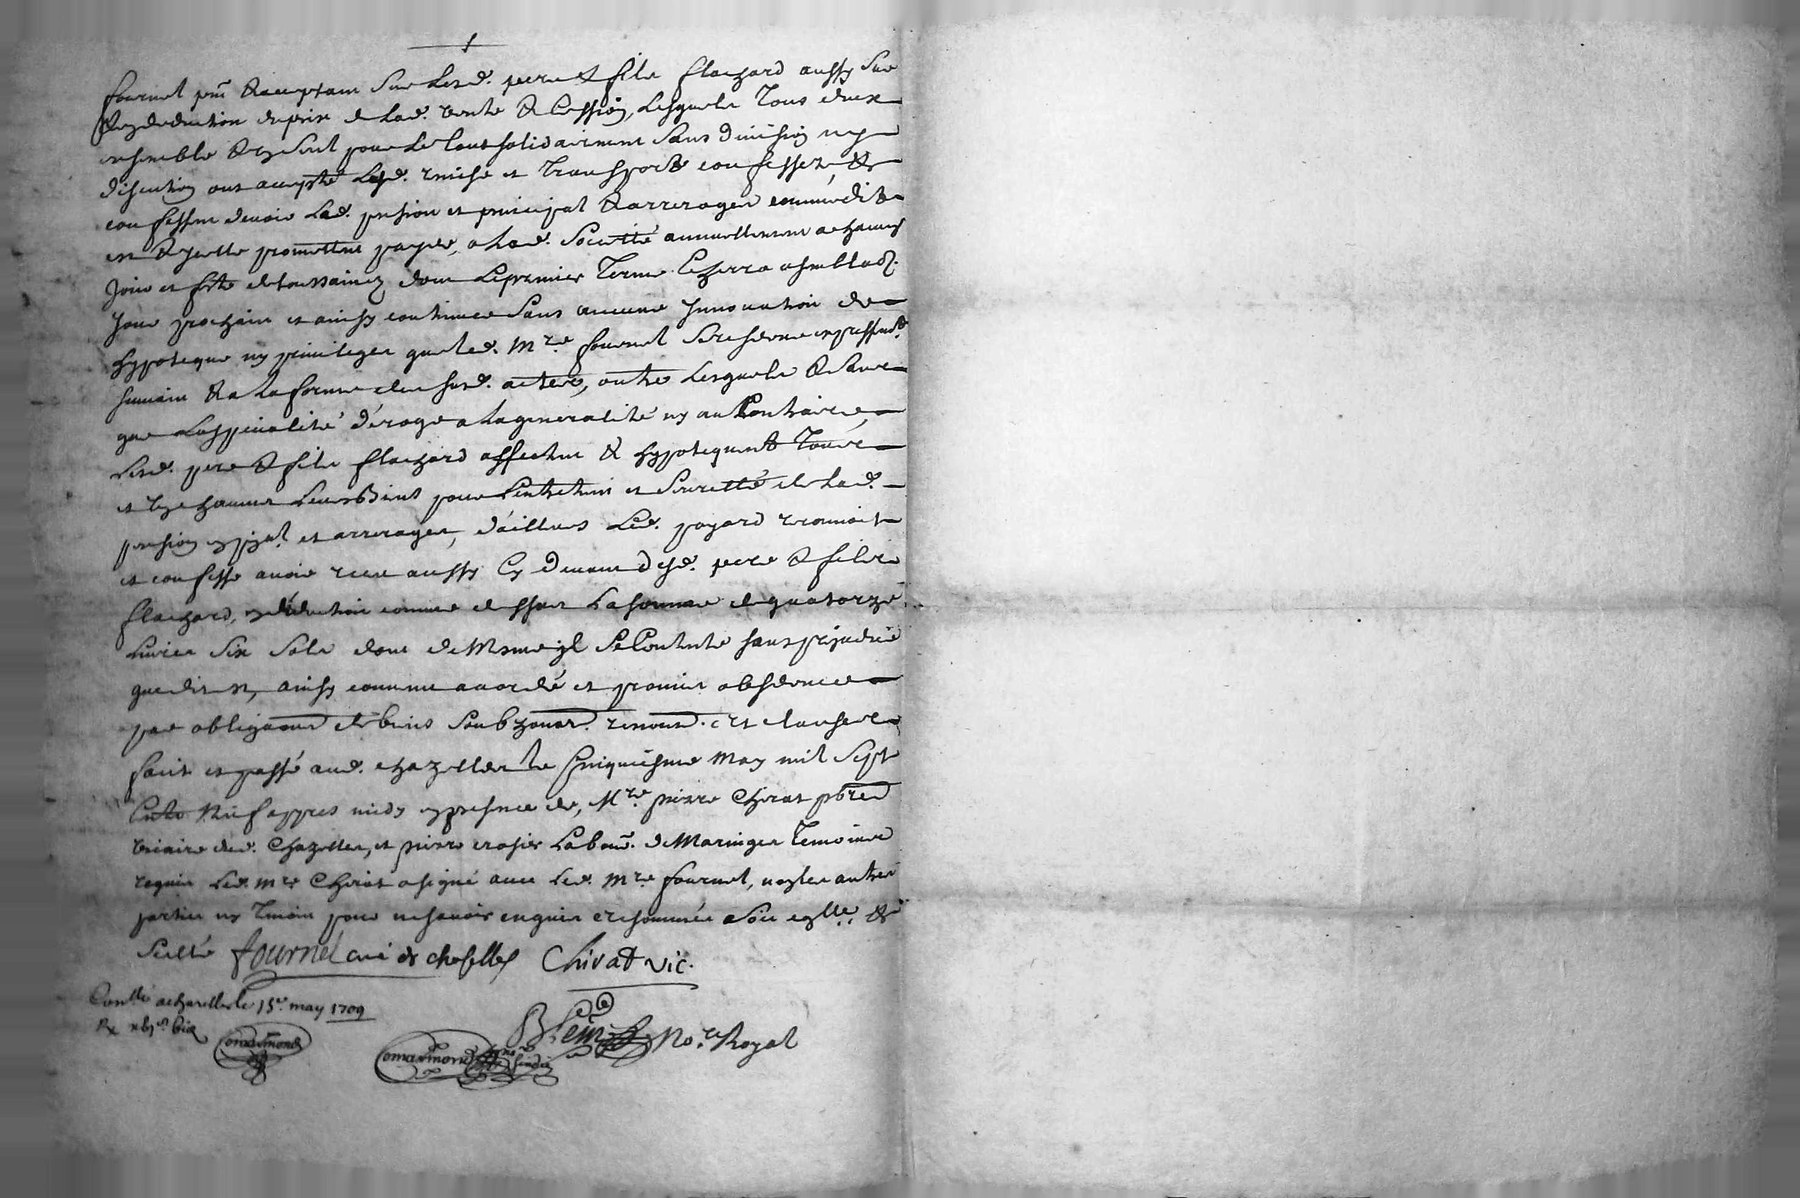 fournel pnt & acceptant sur lesd. pere & fils flachard aussy sur
& en deduction du prix de lad. vente & cession, lesquels tous deux
ensemble & un seul pour le tout solidairement sans division ny
discution ont accepté lesd. remise et transport confessez, &
confessent devoir lad. pension et principal & arrerages comme dit
est & icelle promettent payer, a lad. Societté annuellement a chacun
jour et feste de toussainct, dont le premier terme echerra a semblab.
jour prochain et ainsy continuer sans aucune innovation de
hypoteque ny privileges que led. Mre fournel se reserve expressemt
suivant & a la forme des susd. actes, outre lesquels & sans
que la specialité déroge a la generalité ny au Contraire,
lesd. pere & fils flachard affectent & hypotequent tous
et un chacuns leurs biens pour l'entretien et seuretté de lad.
pension ppal. et arrerages, d'ailleurs led. payard reconnoit
et confesse avoir receu aussy cy devant desd. pere & fils
flachard, en déduction comme dessus la somme de quatorze
livres six sols dont de mesme il se contente sans prejudice
que dit est, ainsy convenu accordé et promis observer
par obligaons de biens soubz renond. et clauses
fait et passé aud. chazelles le Cinquiesme May mil sept
Cents Neuf appres midy en presence de, Mre pierre Chirat pbre
vicaire dud. Chazelles, et pierre crosier Labour. de Maringes temoins
requis led. Mre Chirat a signé avec led. Mre fournel, non les autres
parties ny tmoin pour ne scavoir enquis et sommés a soir contlle. &
scellé fournel curé de chaselles Chirat vic.
Conllé a chazelles le 15e may 1709
Rx
Comarmond Comarmond
No.re Royal